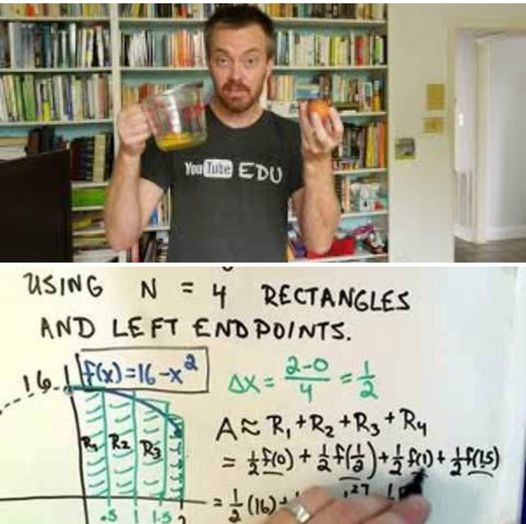 YouTube EDU
USING N = 4 RECTANGLES
AND LEFT ENDPOINTS.
f(x)=16-x²
16
Δx = 2-0/4 = 1/2
A ≈ R₁ + R₂ + R₃ + R₄
R₁ R₂ R₃
= ½f(0) + ½f(½) + ½f(1) + ½f(1.5)
= ½(16)+
.5 1 1.5 2